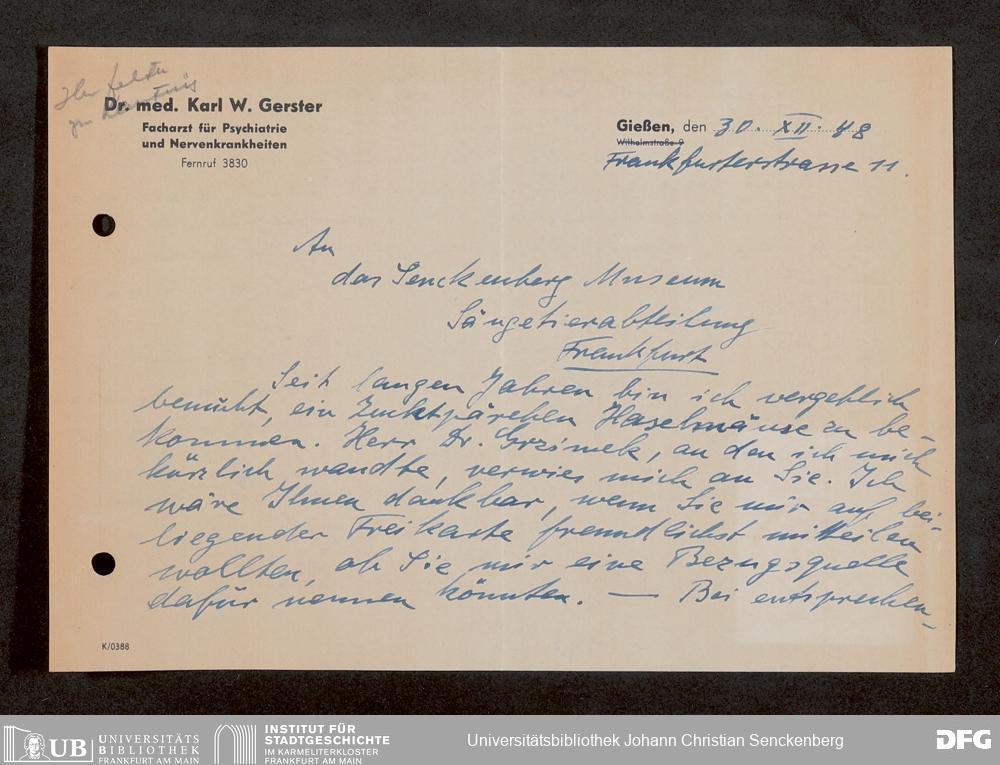 zur Kenntnis
Dr. med. Karl W. Gerster
Facharzt für Psychiatrie
und Nervenkrankheiten
Fernruf 3830
Gießen, den 30. XII. 48
Wilhelmstraße 9
Frankfurterstrasse 11.
An
das Senckenberg Museum
Säugetierabteilung
Frankfurt
Seit langen Jahren bin ich vergeblich
bemüht, ein Zuchtpärchen Haselmäuse zu be-
kommen. Herr Dr. Grzimek, an den ich mich
kürzlich wandte, verwies mich an Sie. Ich
wäre Ihnen dankbar, wenn Sie mir auf bei-
liegender Freikarte freundlichst mitteilen
wollten, ob Sie mir eine Bezugsquelle
dafür nennen könnten. — Bei entsprechen-
K/0388
UB UNIVERSITÄTS
BIBLIOTHEK
FRANKFURT AM MAIN
INSTITUT FÜR
STADTGESCHICHTE
IM KARMELITERKLOSTER
FRANKFURT AM MAIN
Universitätsbibliothek Johann Christian Senckenberg
DFG